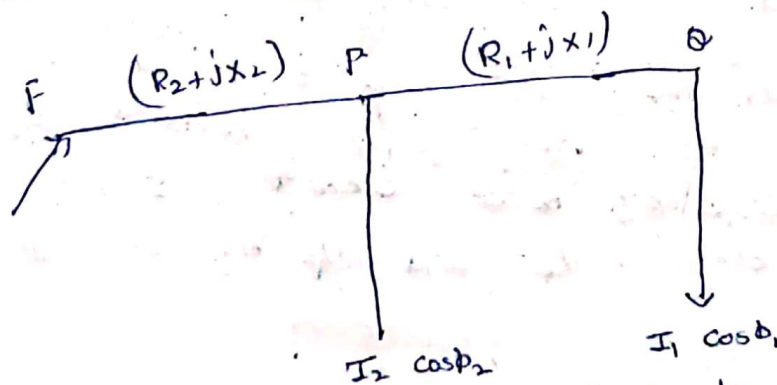 F (R₂+jx₂) P (R₁+jx1) Q
I₂ cosϕ₂ I₁ cosϕ₁